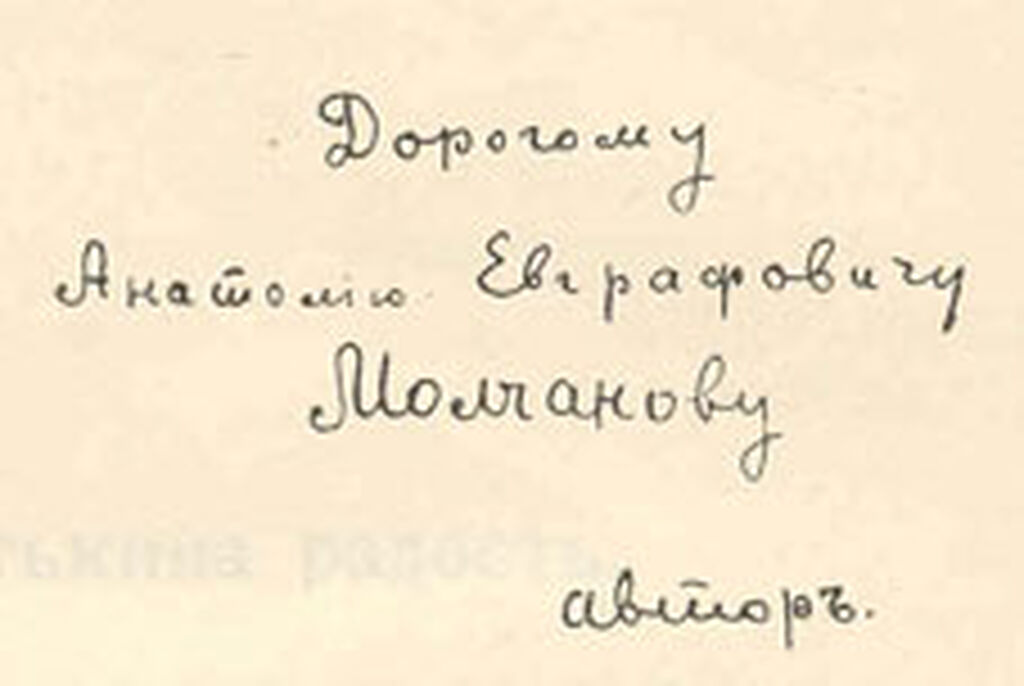 Дорогому
Анатолiю Евграфовичу
Молчанову
радость
авторъ.